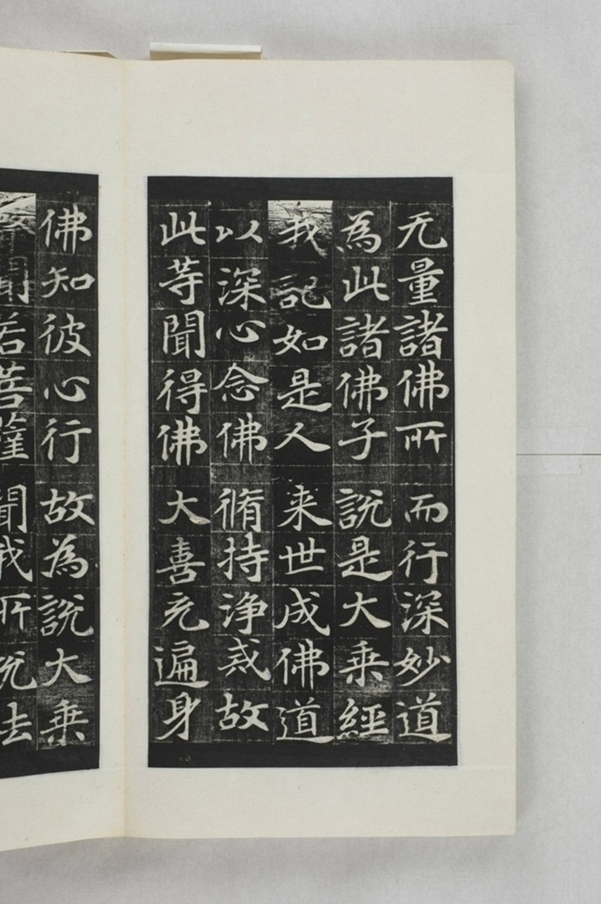 无量諸佛所 而行深妙道
為此諸佛子 說是大乗經
我記如是人 来世成佛道
以深心念佛 脩持浄戒故
此等聞得佛 大喜充遍身
佛知彼心行 故為說大乗
聞若菩薩 聞我所說法